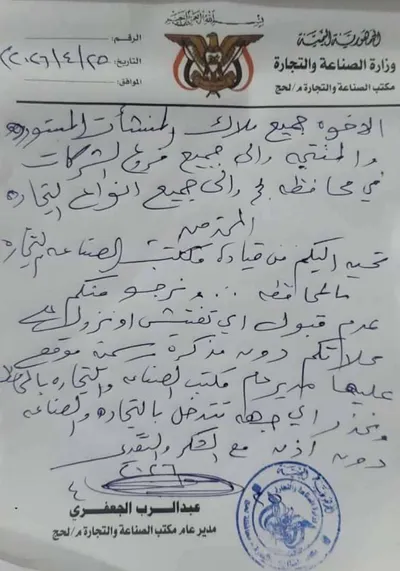 بسم الله الرحمن الرحيم
الجمهورية اليمنية
وزارة الصناعة والتجارة
مكتب الصناعة والتجارة م/لحج
الرقم:
التاريخ: ٢٥/٤/٢٠٢٦
الموافق:
الاخوه جميع ملاك المنشأت المستورده
والمنتجه والى جميع فروع الشركات
في محافظه لحج والى جميع انواع التجاره
المحترمين
تحيه اليكم من قيادة مكتب الصناعه والتجاره
بالمحافظه ... ونرجو منكم
عدم قبول اي تفتيش او نزول على
محلاتكم دون مذكرة رسمية موقع
عليها مدير عام مكتب الصناعه والتجاره بالمحافظه
ونحذر اي جهه تتدخل بالتجاره والصناعه
دون اذن مع الشكر والتقدير
عبدالرب الجعفري
مدير عام مكتب الصناعة والتجارة م/لحج